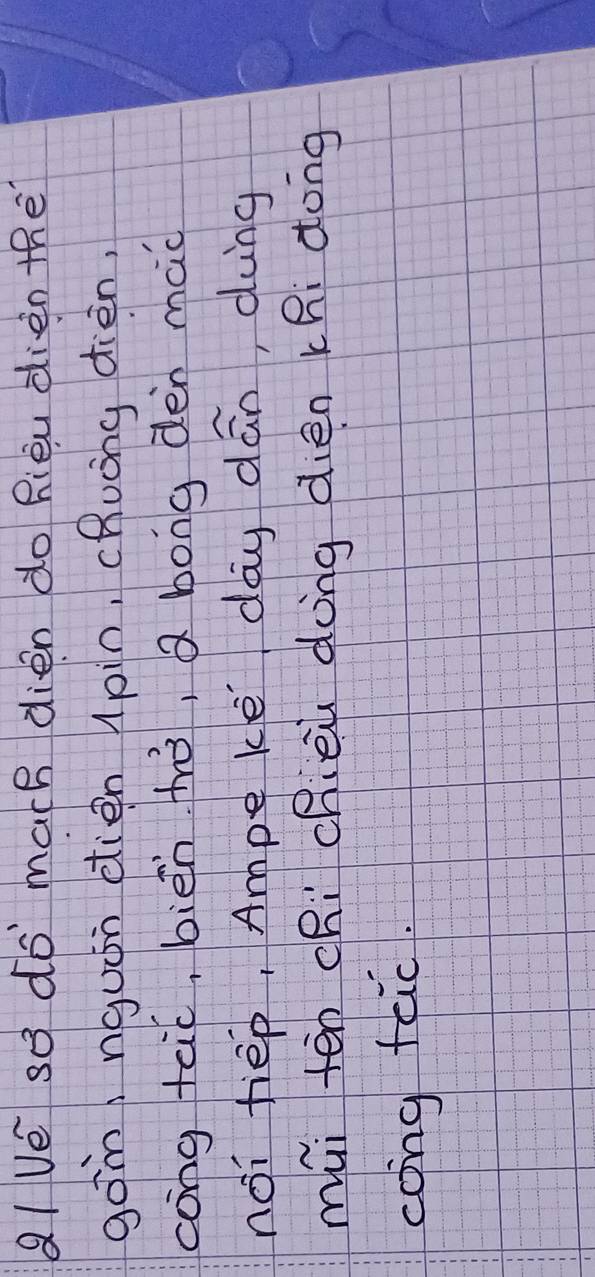 2/ Vẽ sơ đồ mạch điện đo hiệu điện thế
gồm, nguồn điện 1pin, chuông điện,
công tác, biến trở, 2 bóng đèn mắc
nối tiếp, Ampe kế, dây dẫn, dùng
mũi tên chỉ chiều dòng điện khi đóng
công tác.